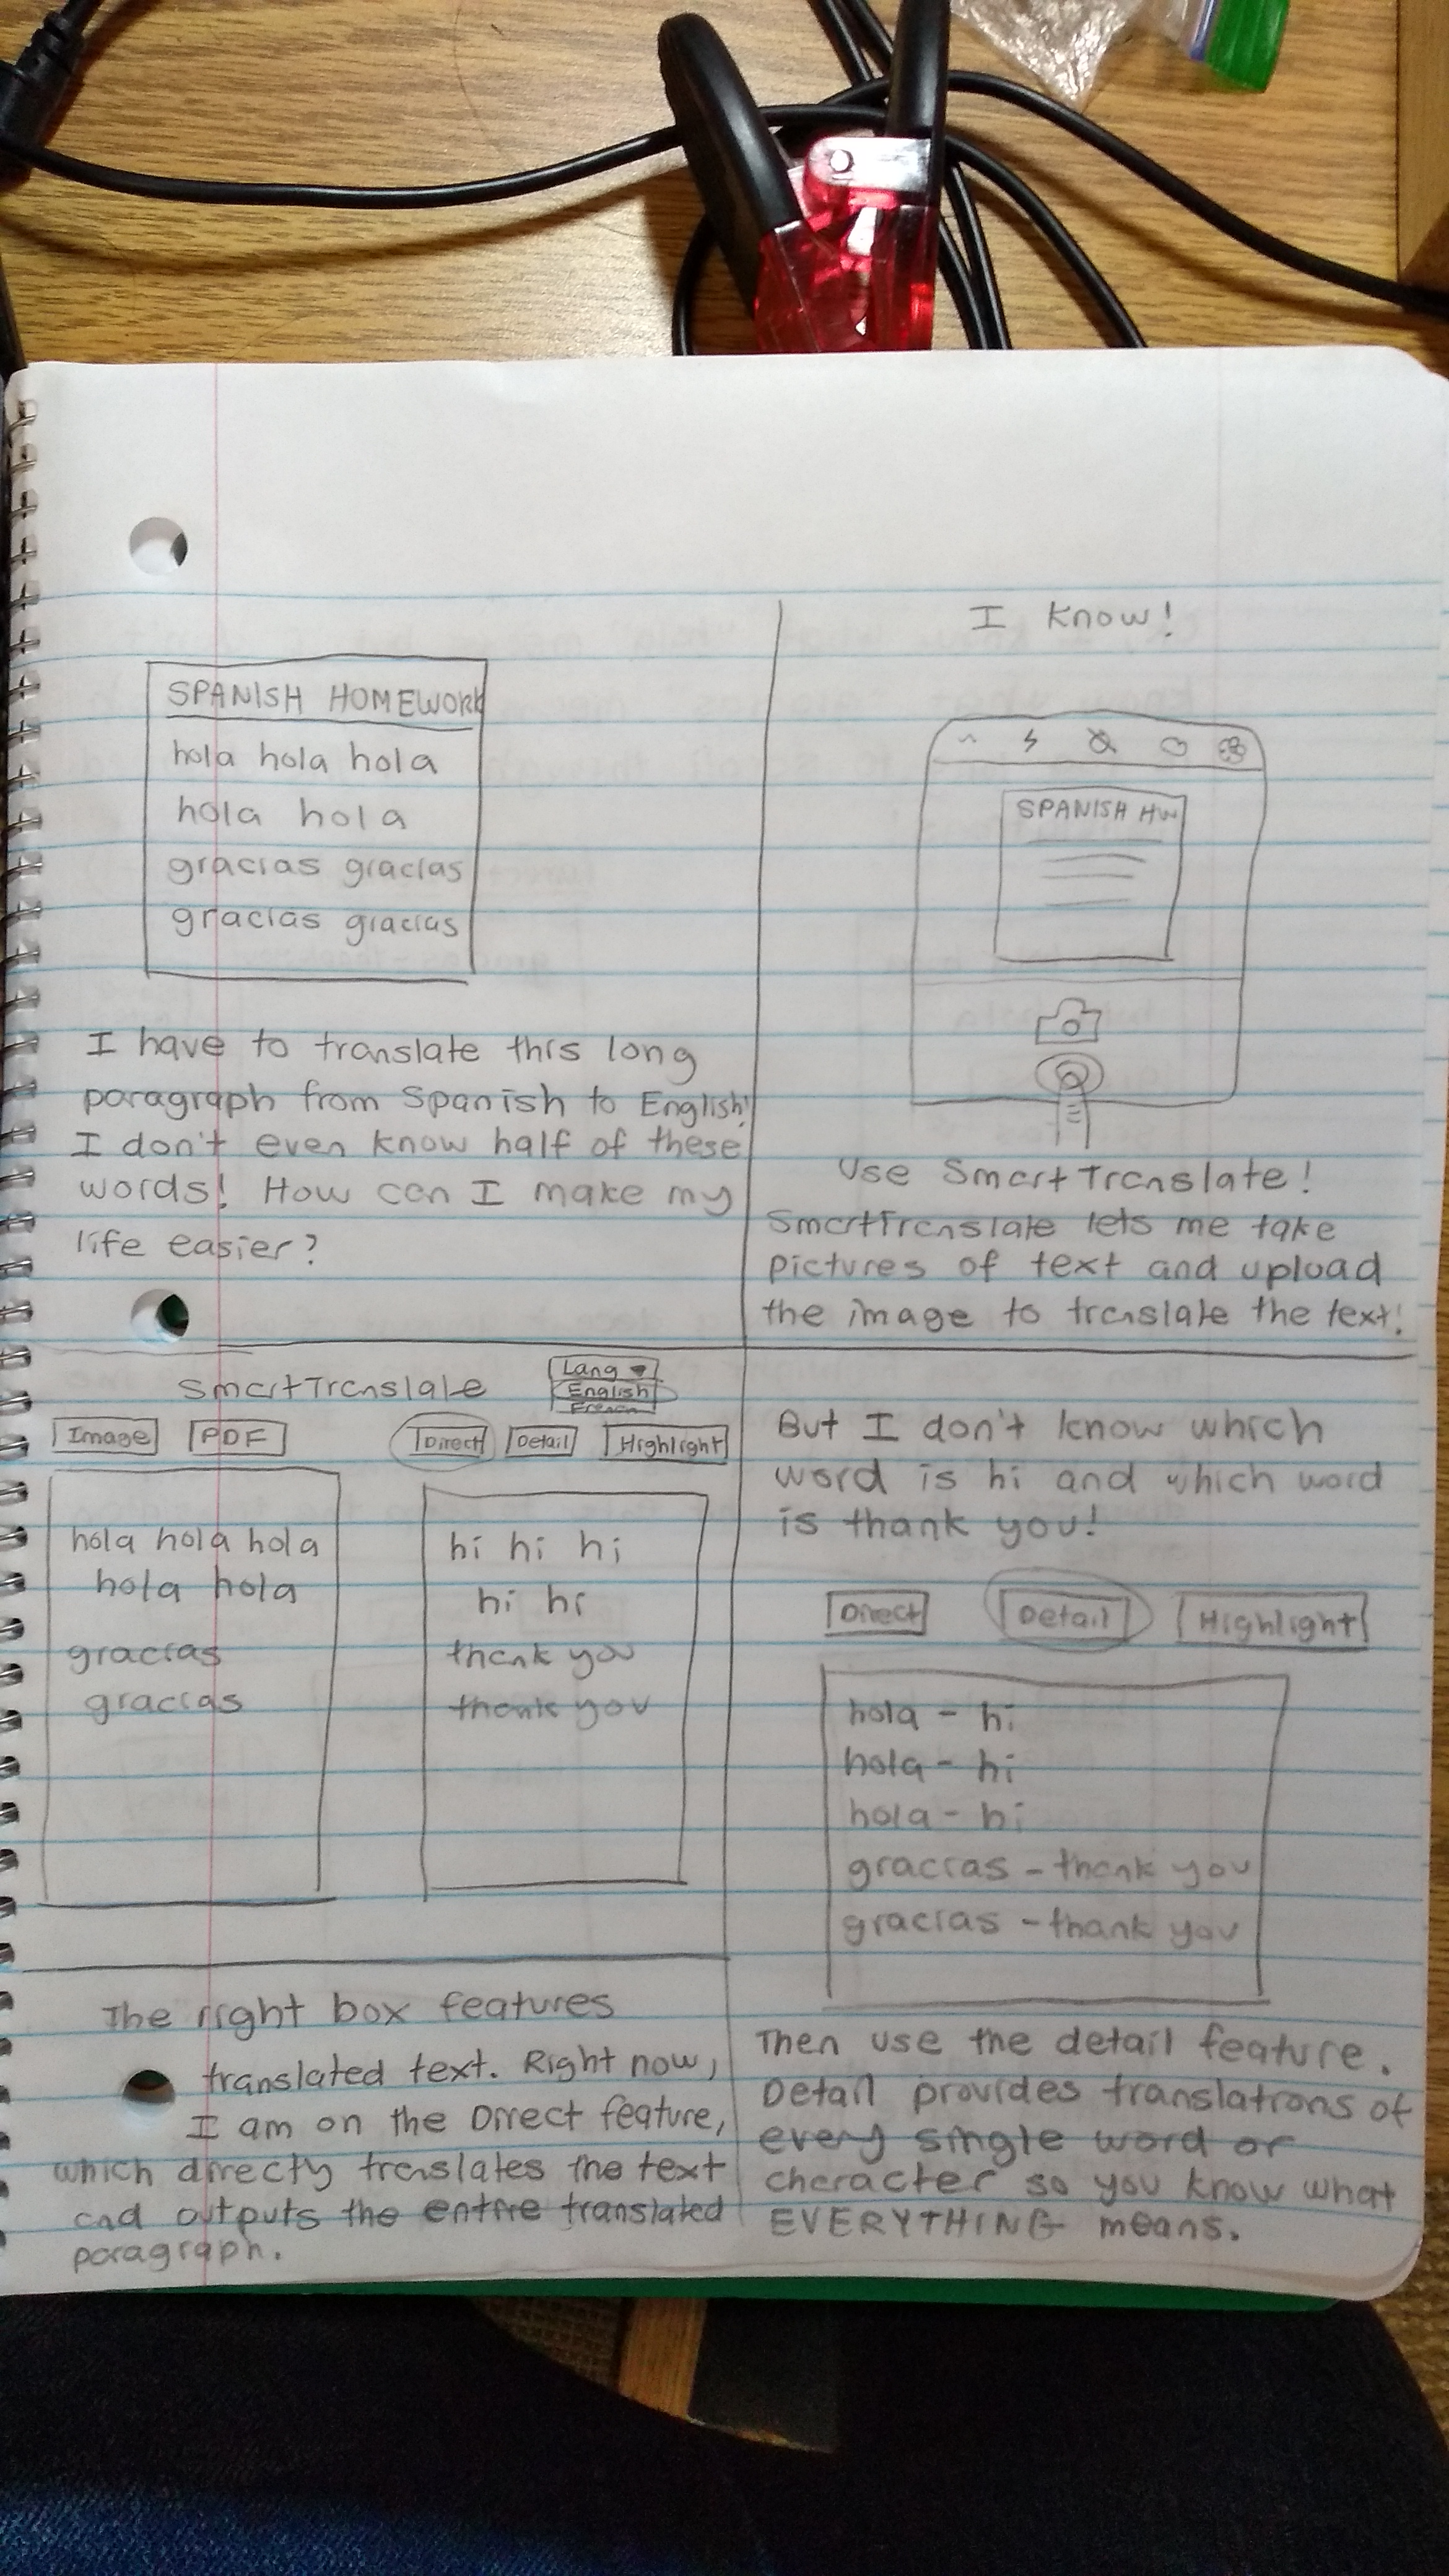 SPANISH HOMEWORK
hola hola hola
hola hola
gracias gracias
gracias gracias
I have to translate this long
paragraph from Spanish to English!
I don't even know half of these
words! How can I make my
life easier?
I know!
SPANISH HW
Use SmartTranslate!
SmartTranslate lets me take
pictures of text and upload
the image to translate the text!
SmartTranslate
Lang
English
French
Image PDF
Direct Detail Highlight
hola hola hola
hola hola
gracias
gracias
hi hi hi
hi hi
thank you
thank you
The right box features
translated text. Right now,
I am on the Direct feature,
which directly translates the text
and outputs the entire translated
paragraph.
But I don't know which
word is hi and which word
is thank you!
Direct Detail Highlight
hola - hi
hola - hi
hola - hi
gracias - thank you
gracias - thank you
Then use the detail feature.
Detail provides translations of
every single word or
character so you know what
EVERYTHING means.